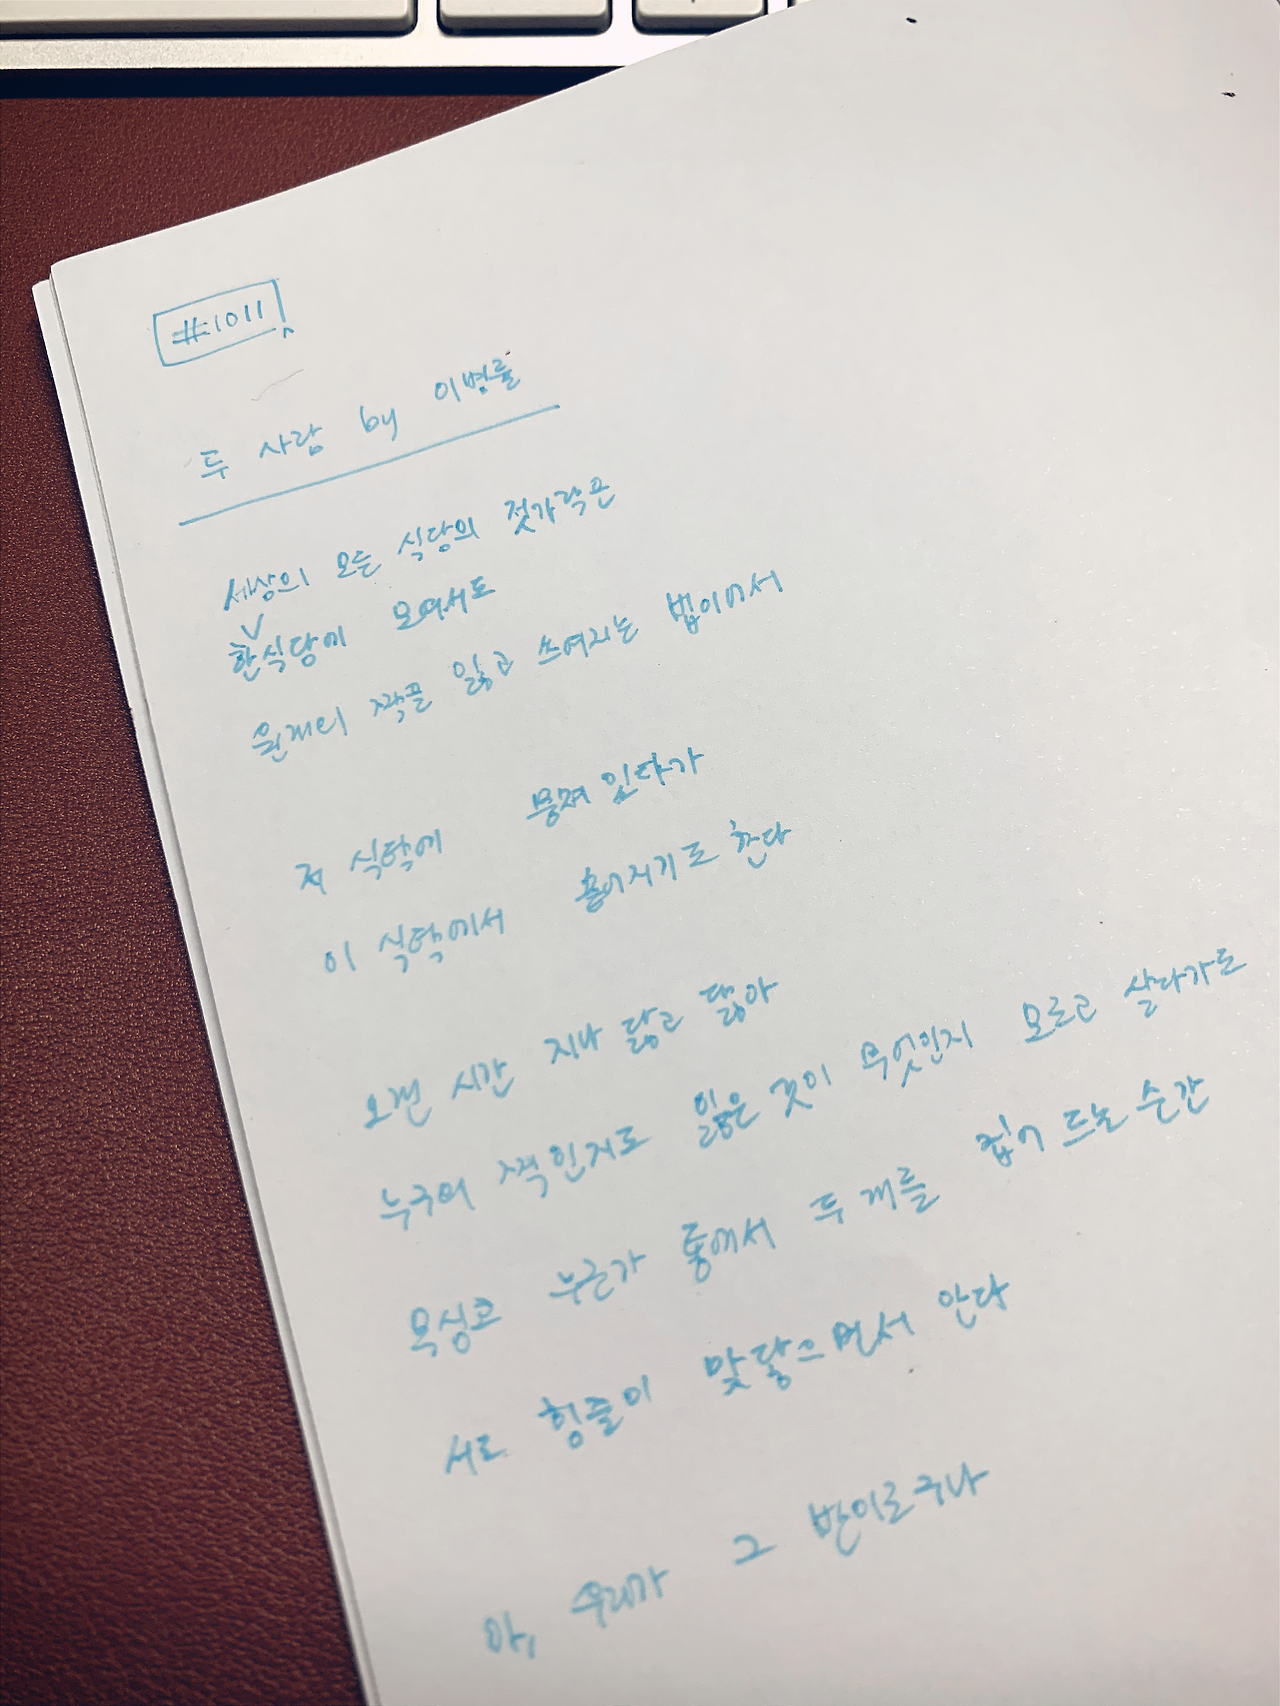 #1011
두 사람 by 이병률
세상의 모든 식당의 젓가락은
한식당에 모여서도
원래의 짝을 잃고 쓰여지는 법이어서
저 식탁에 뭉쳐 있다가
이 식탁에서 흩어지기도 한다
오랜 시간 지나 닳고 닳아
누구의 짝인지도 잃은 것이 무엇인지 모르고 살다가도
문득 누군가 통에서 두 개를 집어 드는 순간
서로 힘줄이 맞닿으면서 안다
아, 우리가 그 반이로구나